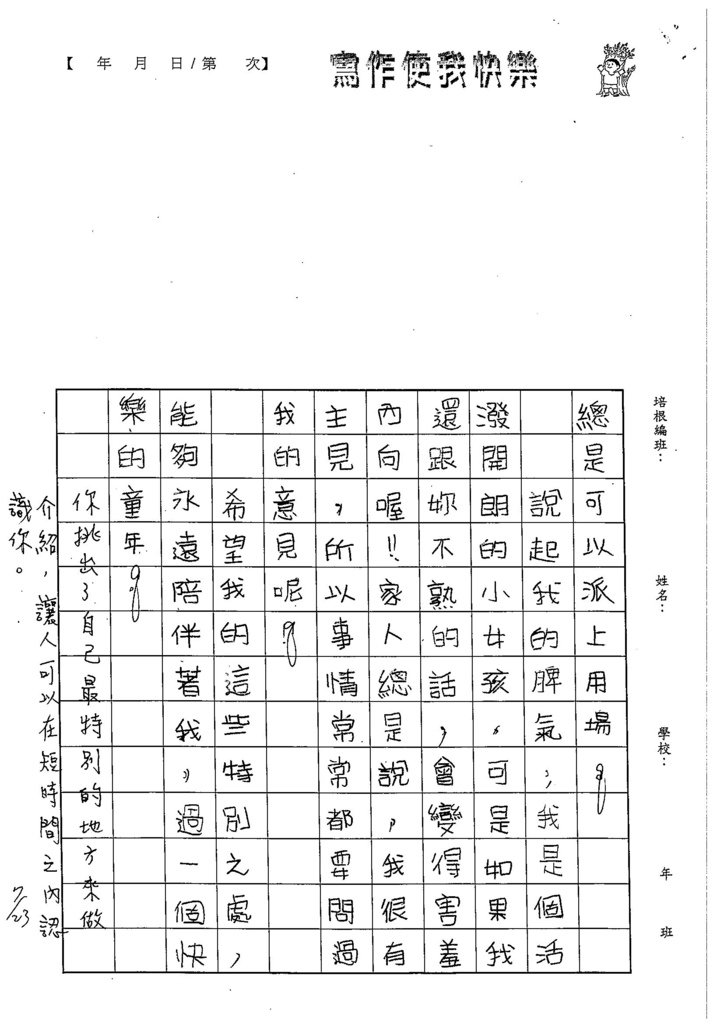 【 年 月 日/第 次】
寫作使我快樂
培根編班：
姓名：
學校：
年
班
總是可以派上用場。
說起我的脾氣，我是個活
潑開朗的小女孩，可是如果我
還跟妳不熟的話，會變得害羞
內向喔!!家人總是說，我很有
主見，所以事情常常都要問過
我的意見呢。
希望我的這些特別之處，
能夠永遠陪伴著我，過一個快
樂的童年。
你挑出了自己最特別的地方來做
介紹，讓人可以在短時間之內認
識你。
7/23